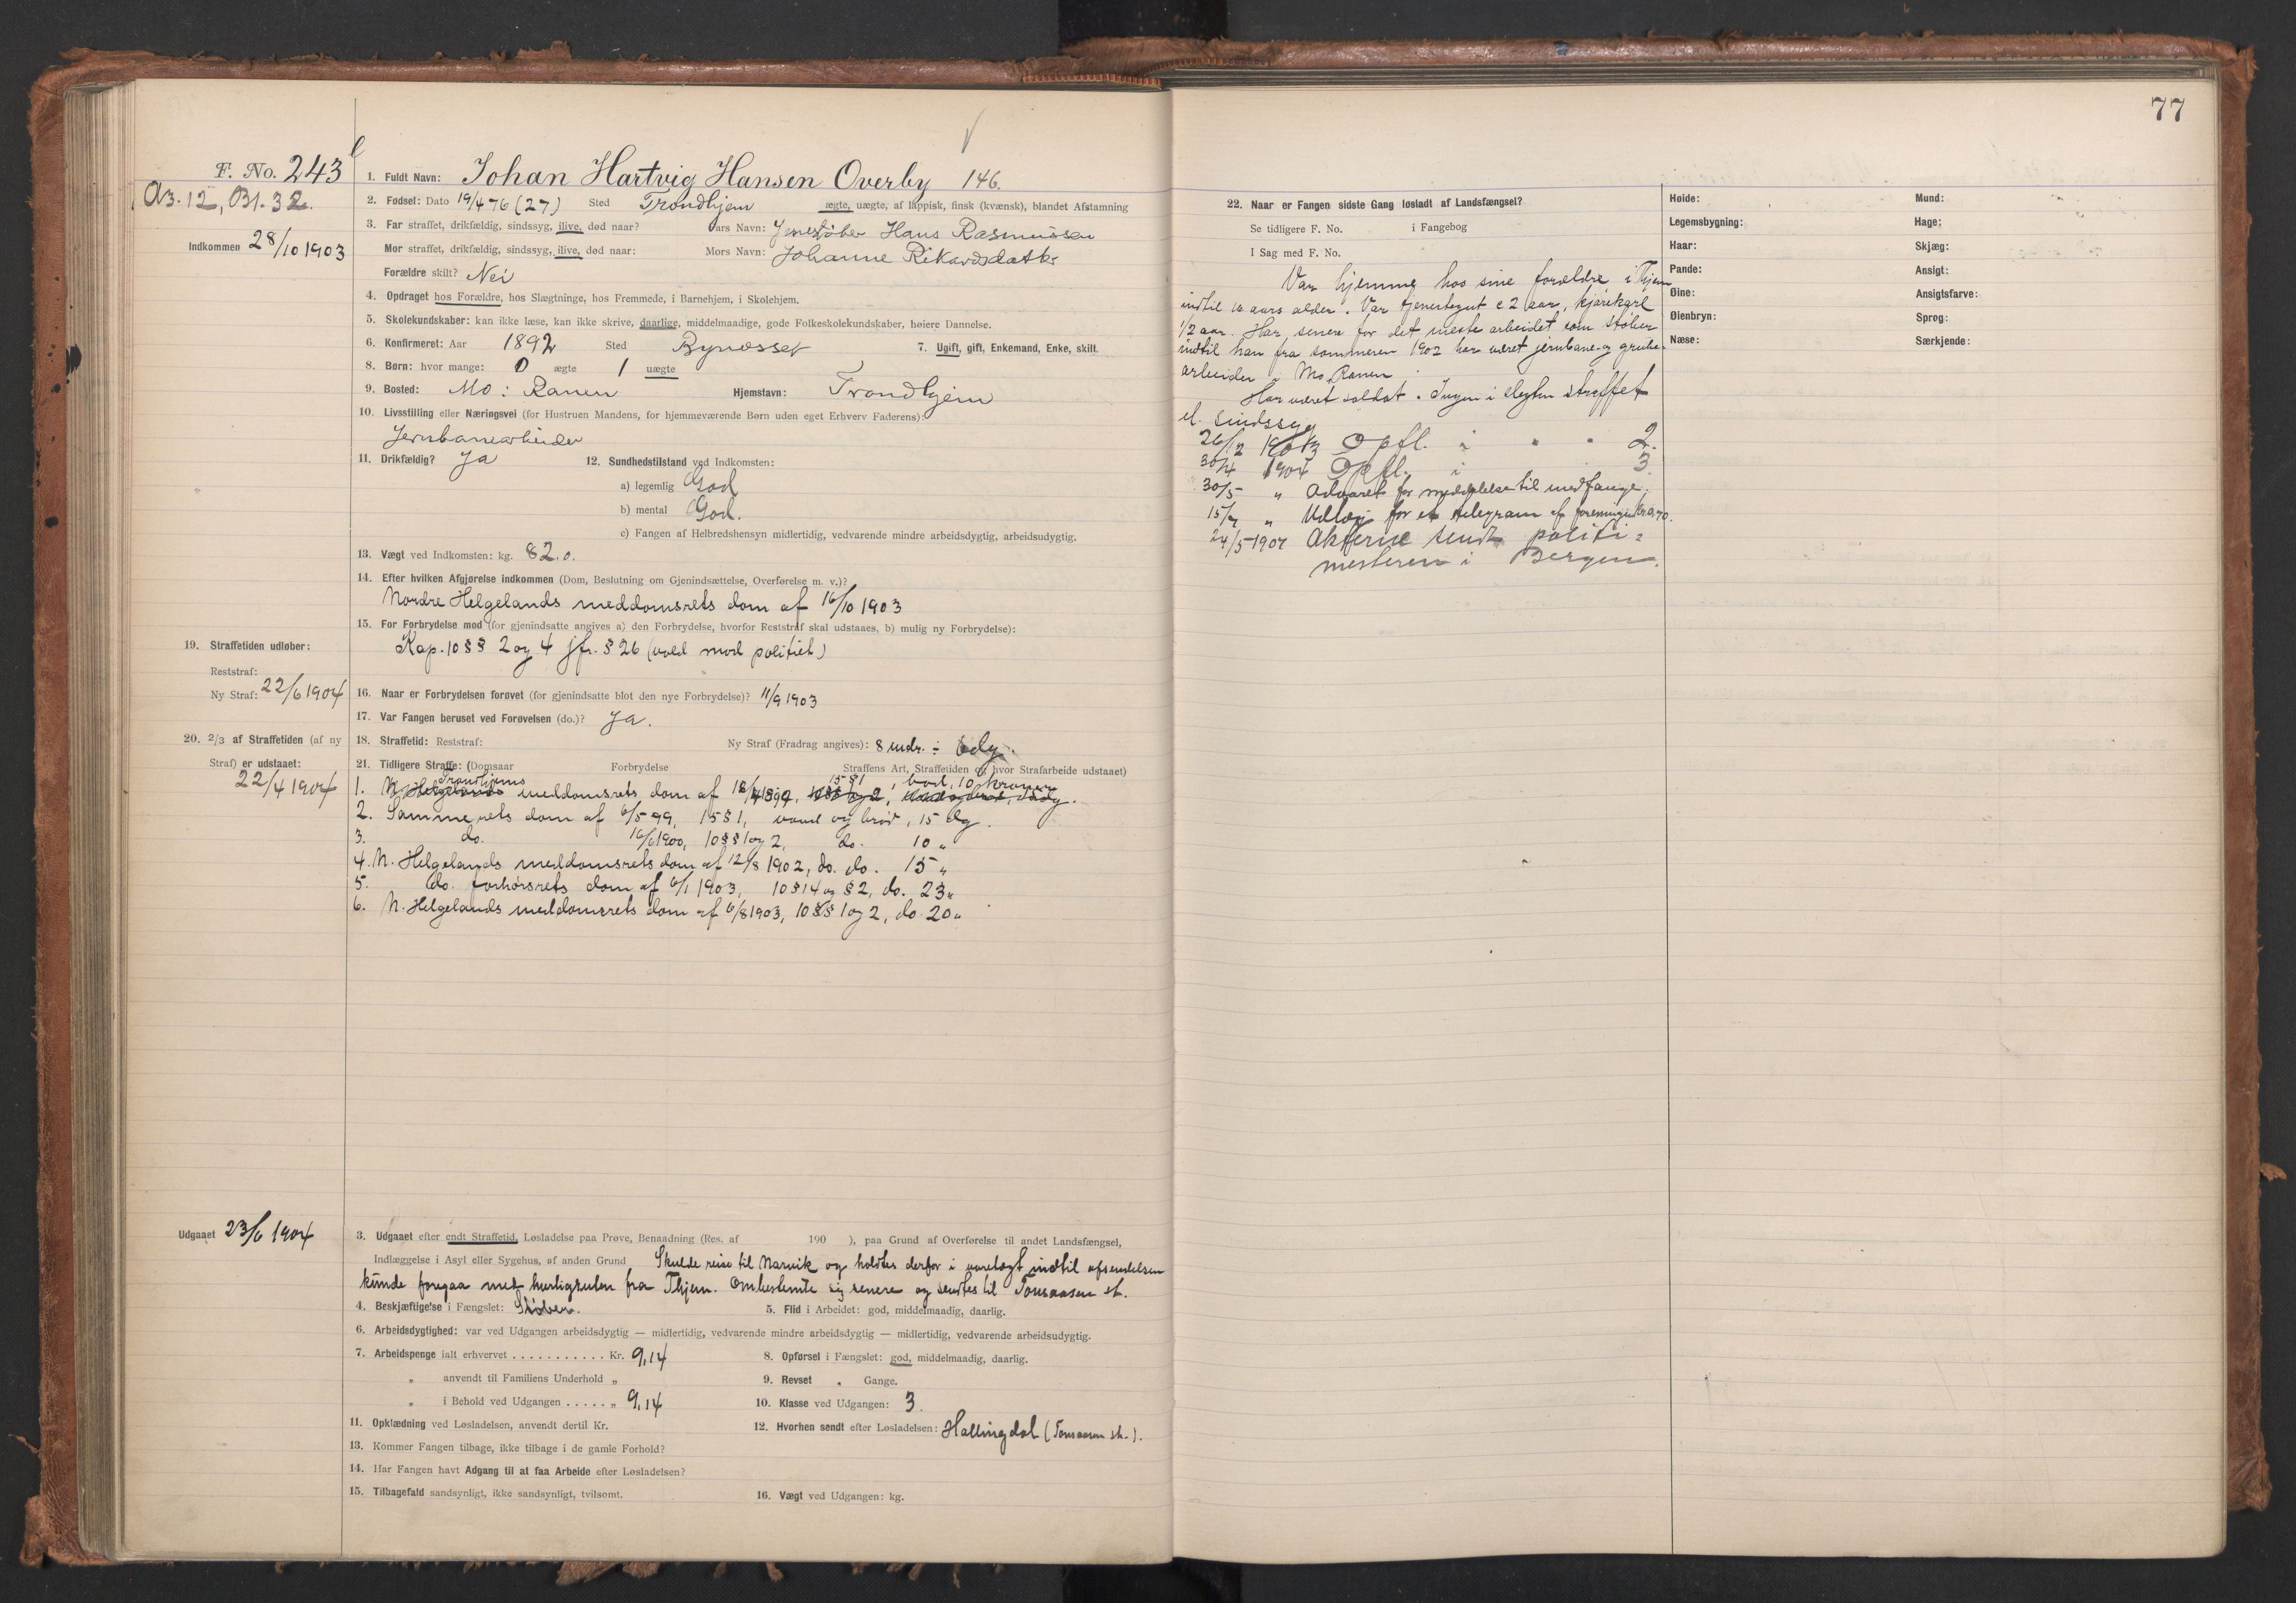 77
F. No. 243
1. Fuldt Navn: Johan Hartvig Hansen Overby 146.
A3.12, Bl. 32.
2. Fødsel: Dato 19/4 76 (27) Sted Trondhjem ægte, uægte, af lappisk, finsk (kvænsk), blandet Afstamning
3. Far straffet, drikfældig, sindssyg, ilive, død naar? Fars Navn: Jernstøber Hans Rasmussen
Indkommen 28/10 1903
Mor straffet, drikfældig, sindssyg, ilive, død naar: Mors Navn: Johanne Rikardsdatter
Forældre skilt? Nei
4. Opdraget hos Forældre, hos Slægtninge, hos Fremmede, i Barnehjem, i Skolehjem.
5. Skolekundskaber: kan ikke læse, kan ikke skrive, daarlige, middelmaadige, gode Folkeskolekundskaber, høiere Dannelse.
6. Konfirmeret: Aar 1892 Sted Bynesset 7. Ugift, gift, Enkemand, Enke, skilt.
8. Børn: hvor mange: 0 ægte 1 uægte
9. Bosted: Mo: Ranen Hjemstavn: Trondhjem
10. Livsstilling eller Næringsvei (for Hustruen Mandens, for hjemmeværende Børn uden eget Erhverv Faderens):
Jernbanearbeider
11. Drikfældig? Ja 12. Sundhedstilstand ved Indkomsten:
a) legemlig God
b) mental God.
c) Fangen af Helbredshensyn midlertidig, vedvarende mindre arbeidsdygtig, arbeidsudygtig.
13. Vægt ved Indkomsten: kg. 82.0.
14. Efter hvilken Afgjørelse indkommen (Dom, Beslutning om Gjenindsættelse, Overførelse m. v.)?
Nordre Helgelands meddomsrets dom af 16/10 1903
15. For Forbrydelse mod (for gjenindsatte angives a) den Forbrydelse, hvorfor Reststraf skal udstaaes, b) mulig ny Forbrydelse):
Kap. 10 §§ 2 og 4 jfr. § 26 (vold mod politiet)
19. Straffetiden udløber:
Reststraf:
Ny Straf: 22/6 1904
16. Naar er Forbrydelsen forøvet (for gjenindsatte blot den nye Forbrydelse)? 11/9 1903
17. Var Fangen beruset ved Forøvelsen (do.)? Ja.
20. 2/3 af Straffetiden (af ny
Straf) er udstaaet:
22/4 1904
18. Straffetid: Reststraf: Ny Straf (Fradrag angives): 8 mdr. ÷ 6 dg.
21. Tidligere Straffe: (Domsaar Forbrydelse Straffens Art, Straffetiden og hvor Strafarbeide udstaaet)
1. Trondhjems meddomsrets dom af 15 § 1, bod, 10 kroner
2. Samme rets dom af 6/5 99, 15 § 1, vand og brød, 15 dg.
3. do. 16/6 1900, 10 §§ 1 og 2, do. 10 "
4. N. Helgelands meddomsrets dom af 12/8 1902, do. do. 15 "
5. do. forhørsrets dom af 6/1 1903, 10 § 14 og § 2, do. 23 "
6. N. Helgelands meddomsrets dom af 6/8 1903, 10 §§ 1 og 2, do. 20 "
Udgaaet 23/6 1904
3. Udgaaet efter endt Straffetid, Løsladelse paa Prøve, Benaadning (Res. af 190 ), paa Grund af Overførelse til andet Landsfængsel,
Indlæggelse i Asyl eller Sygehus, af anden Grund Skulde reise til Narvik og holdtes derfor i varetægt indtil afsendelsen
kunde foregaa med hurtigruten fra Thjem. Ombestemte sig senere og sendtes til Tonsaasen st.
4. Beskjæftigelse i Fængslet: Støber. 5. Flid i Arbeidet: god, middelmaadig, daarlig.
6. Arbeidsdygtighed: var ved Udgangen arbeidsdygtig — midlertidig, vedvarende mindre arbeidsdygtig — midlertidig, vedvarende arbeidsudygtig.
7. Arbeidspenge ialt erhvervet . . . . . . . . . . . Kr. 9,14 8. Opførsel i Fængslet: god, middelmaadig, daarlig.
" anvendt til Familiens Underhold " 9. Revset " Gange.
" i Behold ved Udgangen . . . . . " 9,14 10. Klasse ved Udgangen: 3.
11. Opklædning ved Løsladelsen, anvendt dertil Kr. 12. Hvorhen sendt efter Løsladelsen: Hallingdal (Tonsaasen st.).
13. Kommer Fangen tilbage, ikke tilbage i de gamle Forhold?
14. Har Fangen havt Adgang til at faa Arbeide efter Løsladelsen?
15. Tilbagefald sandsynligt, ikke sandsynligt, tvilsomt. 16. Vægt ved Udgangen: kg.
22. Naar er Fangen sidste Gang løsladt af Landsfængsel?
Se tidligere F. No. i Fangebog
I Sag med F. No.
Var hjemme hos sine forældre i Thjem
indtil aars alder. Var tjenestegut c 2 aar, kjørekarl
1/2 aar. Har senere for det meste arbeidet som støber
indtil han fra sommeren 1902 har været jernbane- og grube-
arbeider i Mo, Ranen
Har været soldat. Ingen i slegten straffet
el. sindssyg
26/12 1903 Opfl. i " " 2.
30/4 1904 Opfl. i 3
30/5 " Advaret for meddelelse til medfange.
15/ " Udlæg for et telegram af foreningen Kr. 0,70.
24/5 1907 Akterne sendt politi-
mesteren i Bergen.
Høide: Mund:
Legemsbygning: Hage:
Haar: Skjæg:
Pande: Ansigt:
Øine: Ansigtsfarve:
Øienbryn: Sprog:
Næse: Særkjende: